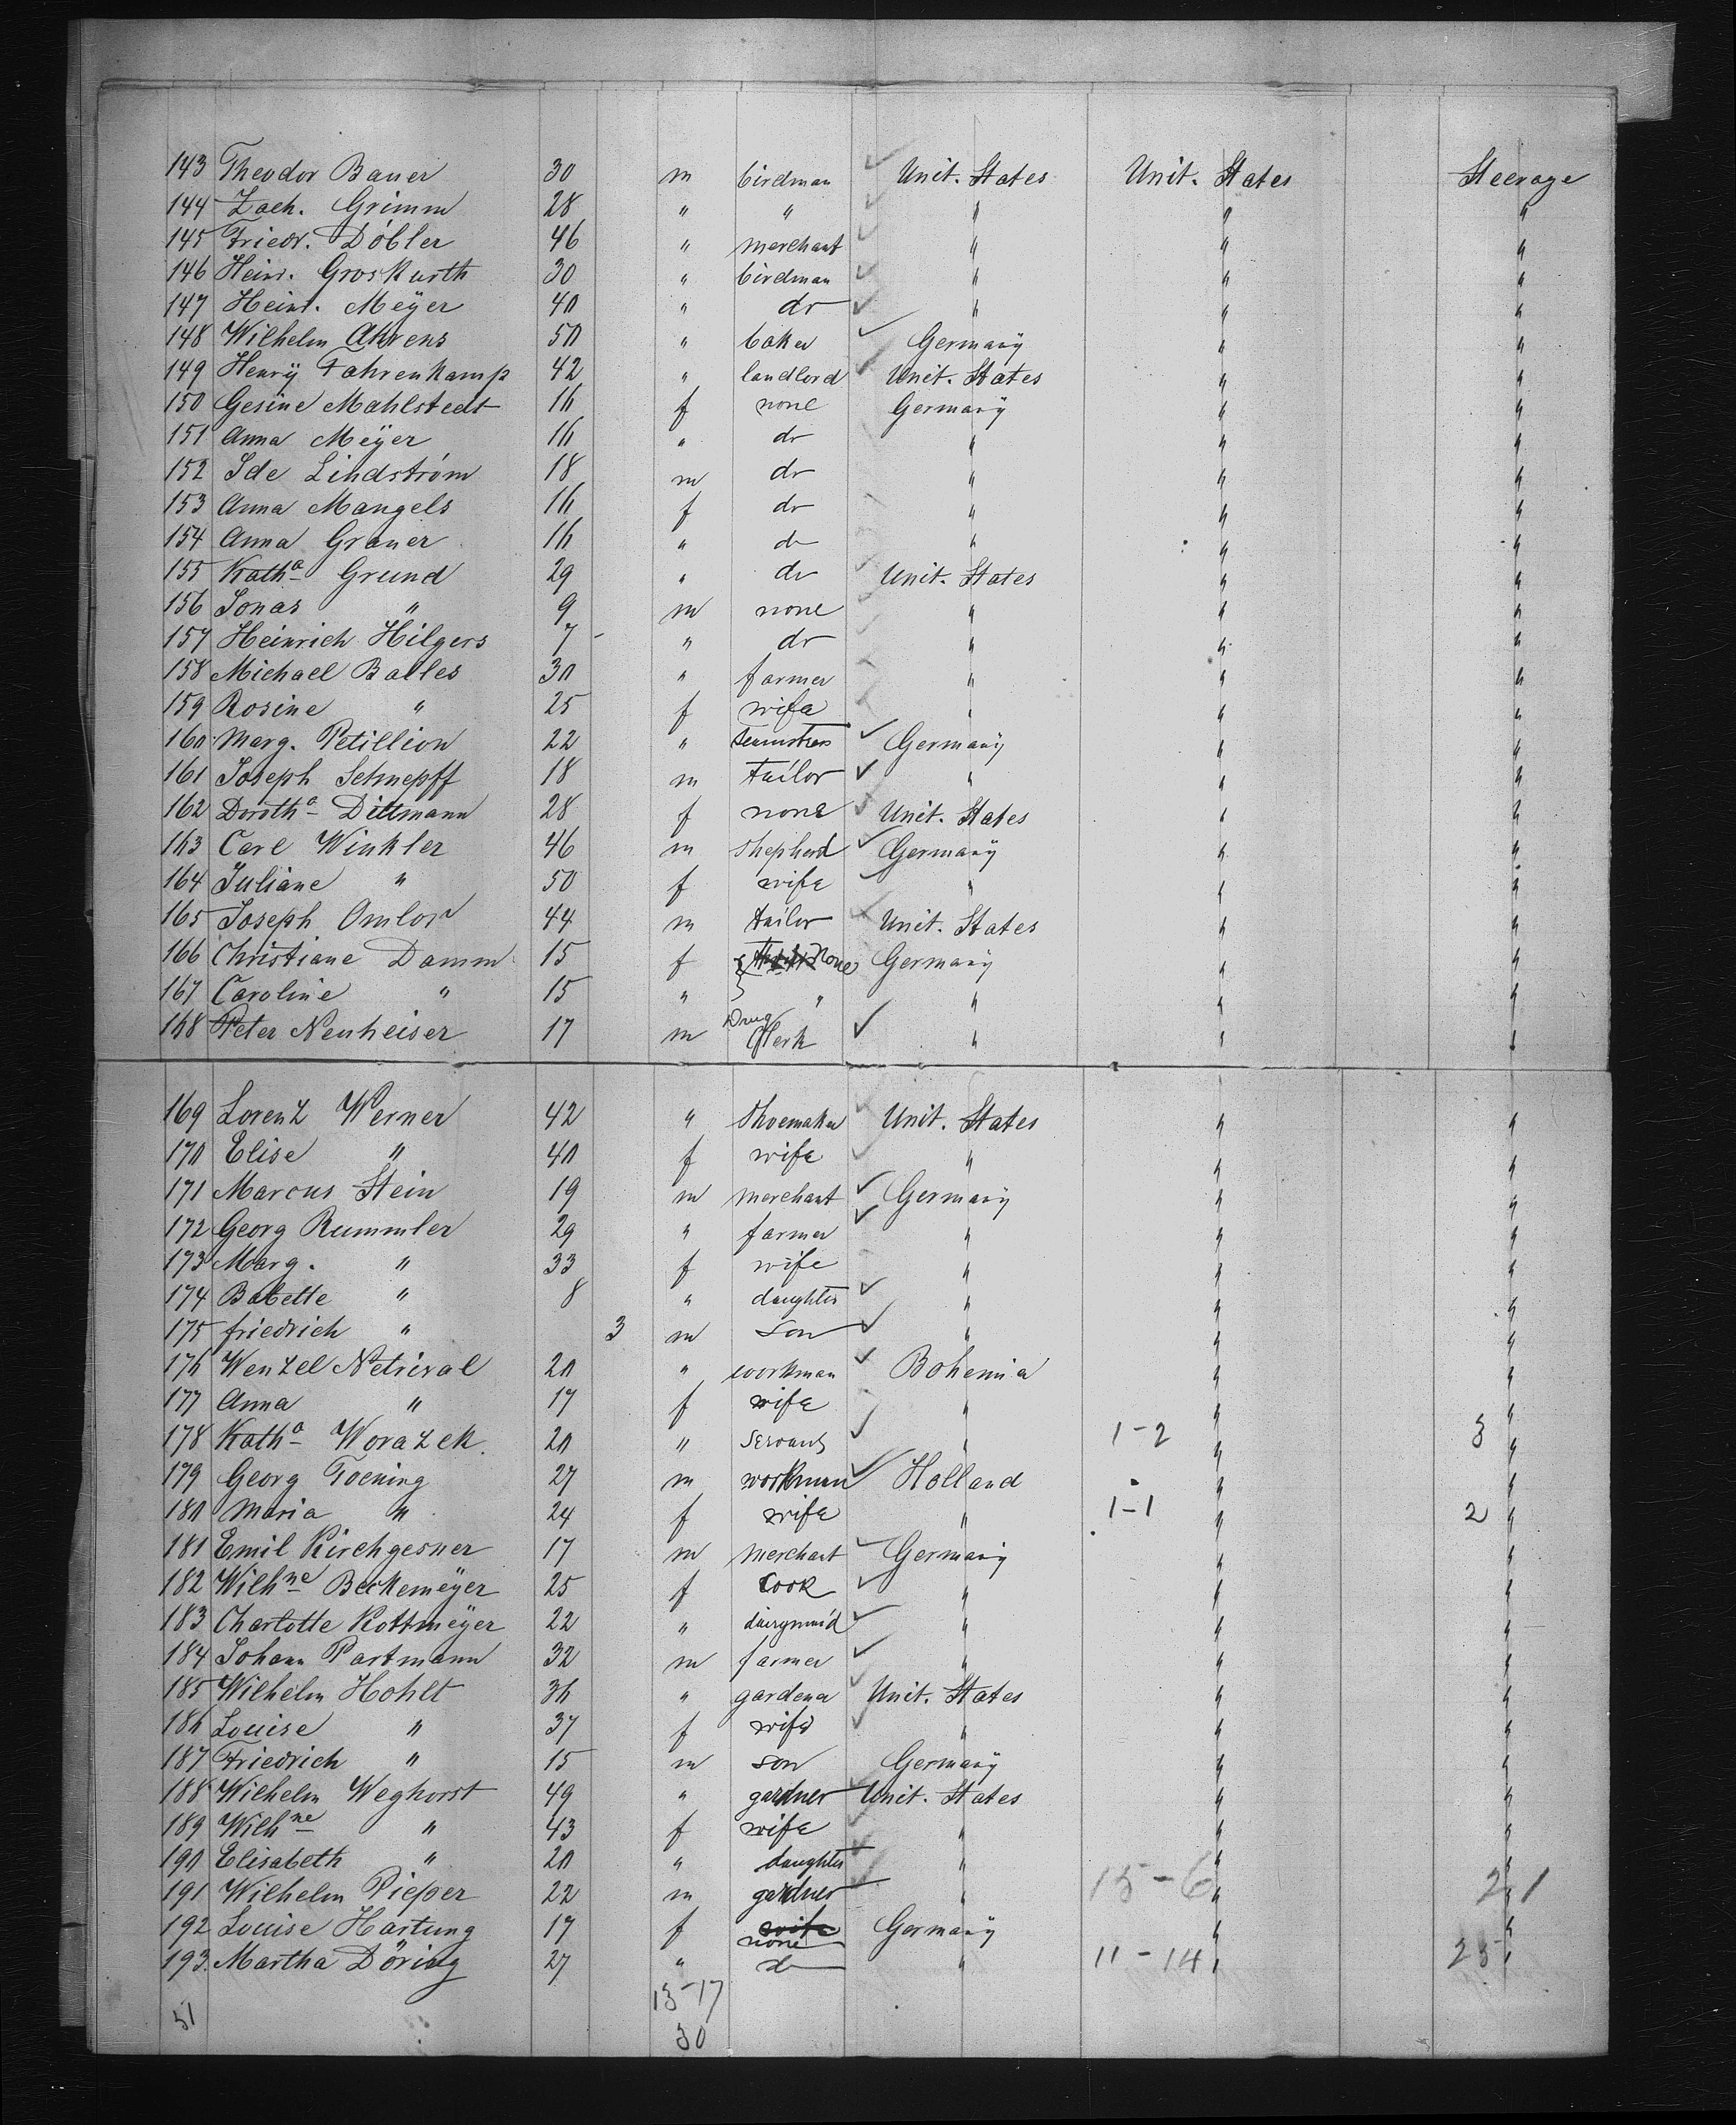 143 Theodor Bauer 30 m birdman Unit. States Unit. States Steerage
144 Zach. Grimm 28 " " " " "
145 Friedr. Döbler 46 " merchant " " "
146 Heinr. Groskurth 30 " birdman " " "
147 Heinr. Meÿer 40 " do " " "
148 Wilhelm Ahrens 50 " baker Germanÿ " "
149 Henrÿ Fahrenkamp 42 " landlord Unit. States " "
150 Gesine Mahlstedt 16 f none Germanÿ " "
151 Anna Meÿer 16 " do " " "
152 Ide Lindström 18 m do " " "
153 Anna Mangels 16 f do " " "
154 Anna Graner 16 " do " " "
155 Katha Grund 29 " do Unit. States " "
156 Jonas " 9 m none " " "
157 Heinrich Hilgers 7 " do " " "
158 Michael Balles 30 " farmer " " "
159 Rosine " 25 f wife " " "
160 Marg. Petillion 22 " Seamstress Germanÿ " "
161 Joseph Schnepff 18 m tailor " " "
162 Dorotha Dittmann 28 f none Unit. States " "
163 Carl Winkler 46 m shepherd Germanÿ " "
164 Juliane " 50 f wife " " "
165 Joseph Omlor 44 m tailor Unit. States " "
166 Christiane Damm 15 f None Germanÿ " "
167 Caroline " 15 " " " " "
168 Peter Neuheiser 17 m Drug Clerk " " "
169 Lorenz Werner 42 " Shoemaker Unit. States " "
170 Elise " 40 f wife " " "
171 Marcus Stein 19 m merchant Germanÿ " "
172 Georg Rummler 29 " farmer " " "
173 Marg. " 33 f wife " " "
174 Babette " 8 " daughter " " "
175 friedrich " 3 m son " " "
176 Wenzel Netrival 20 " workman Bohemia " "
177 Anna " 17 f wife " " "
178 Katha Worazek 20 " servant " 1-2 " 3 "
179 Georg Toening 27 m workman Holland " "
180 Maria " 24 f wife " 1-1 " 2 "
181 Emil Kirchgesner 17 m merchant Germanÿ " "
182 Wilhne Beckemeÿer 25 f Cook " " "
183 Charlotte Kottmeÿer 22 " dairymaid " " "
184 Johann Partmann 32 m farmer " " "
185 Wilhelm Hohlt 36 " gardener Unit. States " "
186 Louise " 37 f wife " " "
187 Friedrich " 15 m son Germanÿ " "
188 Wilhelm Weghorst 49 " gardner Unit. States " "
189 Wilhne " 43 f wife " " "
190 Elisabeth " 20 " daughter " " "
191 Wilhelm Pieper 22 m gardner " 15-6 " 21
192 Louise Hartung 17 f wife none Germanÿ " "
193. Martha Döring 27 " do " 11-14 " 25 "
13-17
51 30